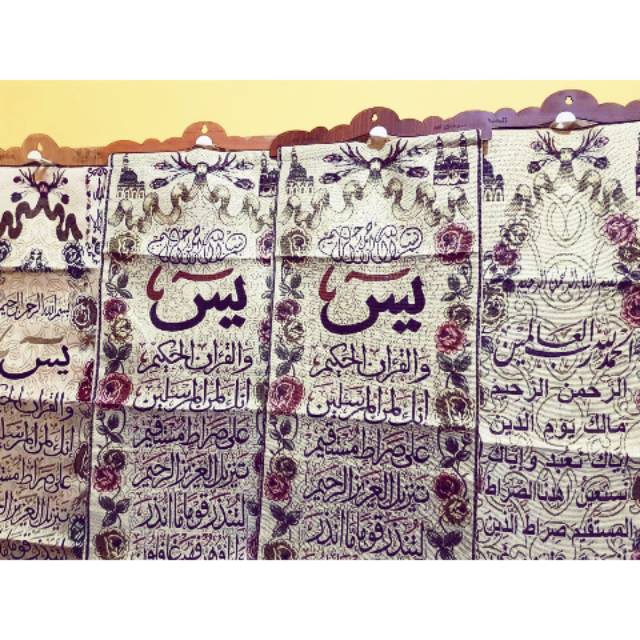 بسم الله الرحمن الرحيم
الحمد لله رب العالمين
الرحمن الرحيم
مالك يوم الدين
إياك نعبد وإياك
نستعين اهدنا الصراط
المستقيم صراط الذين
يس
والقرآن الحكيم
إنك لمن المرسلين
على صراط مستقيم
تنزيل العزيز الرحيم
لتنذر قوما ما أنذر
يس
والقرآن الحكيم
إنك لمن المرسلين
على صراط مستقيم
تنزيل العزيز الرحيم
لتنذر قوما ما أنذر
آباؤهم فهم غافلون
بسم الله الرحمن الرحيم
يس
والقرآن الحكيم
إنك لمن المرسلين
على صراط مستقيم
تنزيل العزيز الرحيم
لتنذر قوما ما أنذر